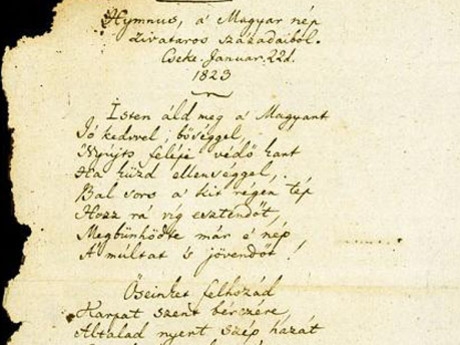 Hymnus, a' Magyar nép
zivataros századaiból.
Cseke, Januar. 22d.
1823
Isten áld meg a' Magyart
Jó kedvvel, bőséggel,
Nyújts feléje védő kart
Ha küzd ellenséggel,
Bal sors a' kit régen tép
Hozz rá víg esztendőt,
Megbünhödte már e' nép
A' múltat 's jövendőt!
Őseinket felhozád
Kárpát szent bérczére,
Általad nyert szép hazát